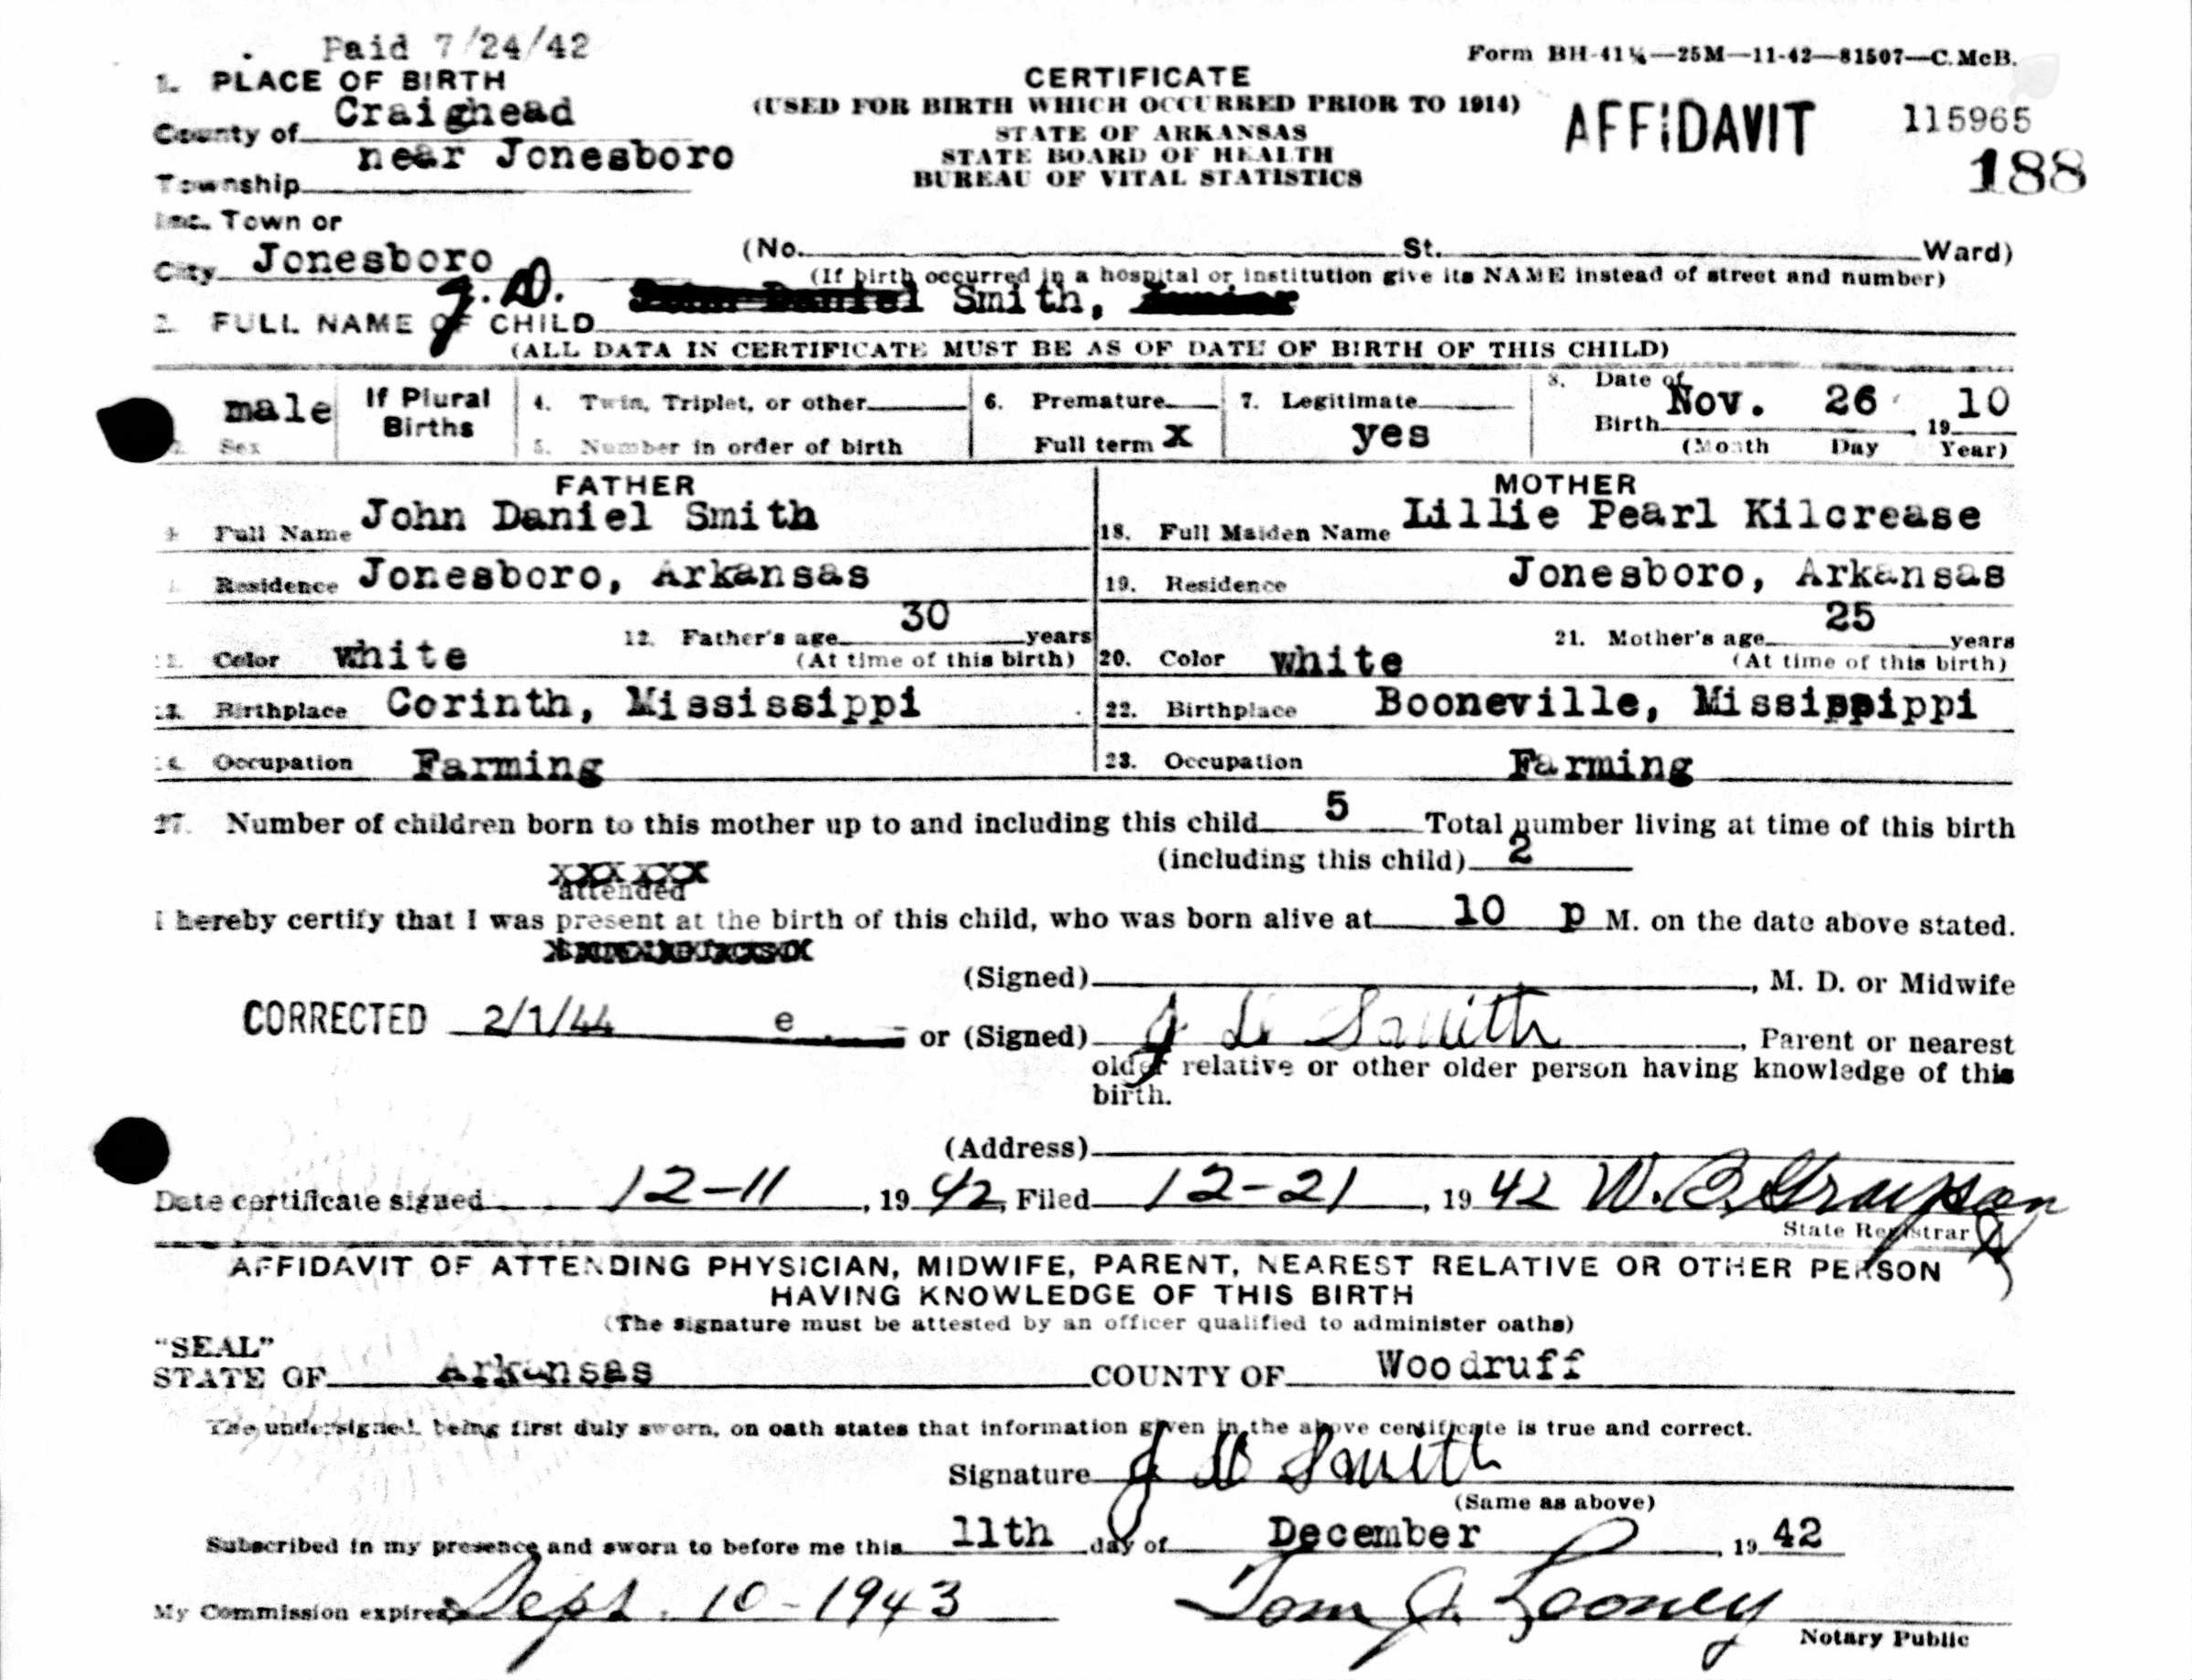 Paid 7/24/42
Form BH-41¼—25M—11-42—81507—C. McB.
1. PLACE OF BIRTH
CERTIFICATE
County of Craighead
(USED FOR BIRTH WHICH OCCURRED PRIOR TO 1914)
AFFIDAVIT 115965
STATE OF ARKANSAS
188
Township near Jonesboro
STATE BOARD OF HEALTH
BUREAU OF VITAL STATISTICS
Inc. Town or
City Jonesboro (No. St. Ward)
(If birth occurred in a hospital or institution give its NAME instead of street and number)
2. FULL NAME OF CHILD J. D. Smith,
(ALL DATA IN CERTIFICATE MUST BE AS OF DATE OF BIRTH OF THIS CHILD)
male Sex
If Plural Births
4. Twin, Triplet, or other
5. Number in order of birth
6. Premature
Full term X
7. Legitimate
yes
8. Date of Birth Nov. 26, 1910
(Month Day Year)
FATHER
MOTHER
Full Name John Daniel Smith
18. Full Maiden Name Lillie Pearl Kilcrease
Residence Jonesboro, Arkansas
19. Residence Jonesboro, Arkansas
Color white 12. Father's age 30 years
(At time of this birth)
20. Color white 21. Mother's age 25 years
(At time of this birth)
13. Birthplace Corinth, Mississippi
22. Birthplace Booneville, Mississippi
14. Occupation Farming
23. Occupation Farming
27. Number of children born to this mother up to and including this child 5 Total number living at time of this birth
(including this child) 2
attended
I hereby certify that I was present at the birth of this child, who was born alive at 10 p M. on the date above stated.
(Signed) , M. D. or Midwife
CORRECTED 2/1/44 e
or (Signed) J D Smith, Parent or nearest
older relative or other older person having knowledge of this
birth.
(Address)
Date certificate signed 12-11, 1942, Filed 12-21, 1942 W. B. Grayson
State Registrar
AFFIDAVIT OF ATTENDING PHYSICIAN, MIDWIFE, PARENT, NEAREST RELATIVE OR OTHER PERSON
HAVING KNOWLEDGE OF THIS BIRTH
(The signature must be attested by an officer qualified to administer oaths)
"SEAL"
STATE OF Arkansas COUNTY OF Woodruff
The undersigned, being first duly sworn, on oath states that information given in the above certificate is true and correct.
Signature J D Smith
(Same as above)
Subscribed in my presence and sworn to before me this 11th day of December, 1942
My Commission expires Sept. 10-1943 Tom J. Looney
Notary Public